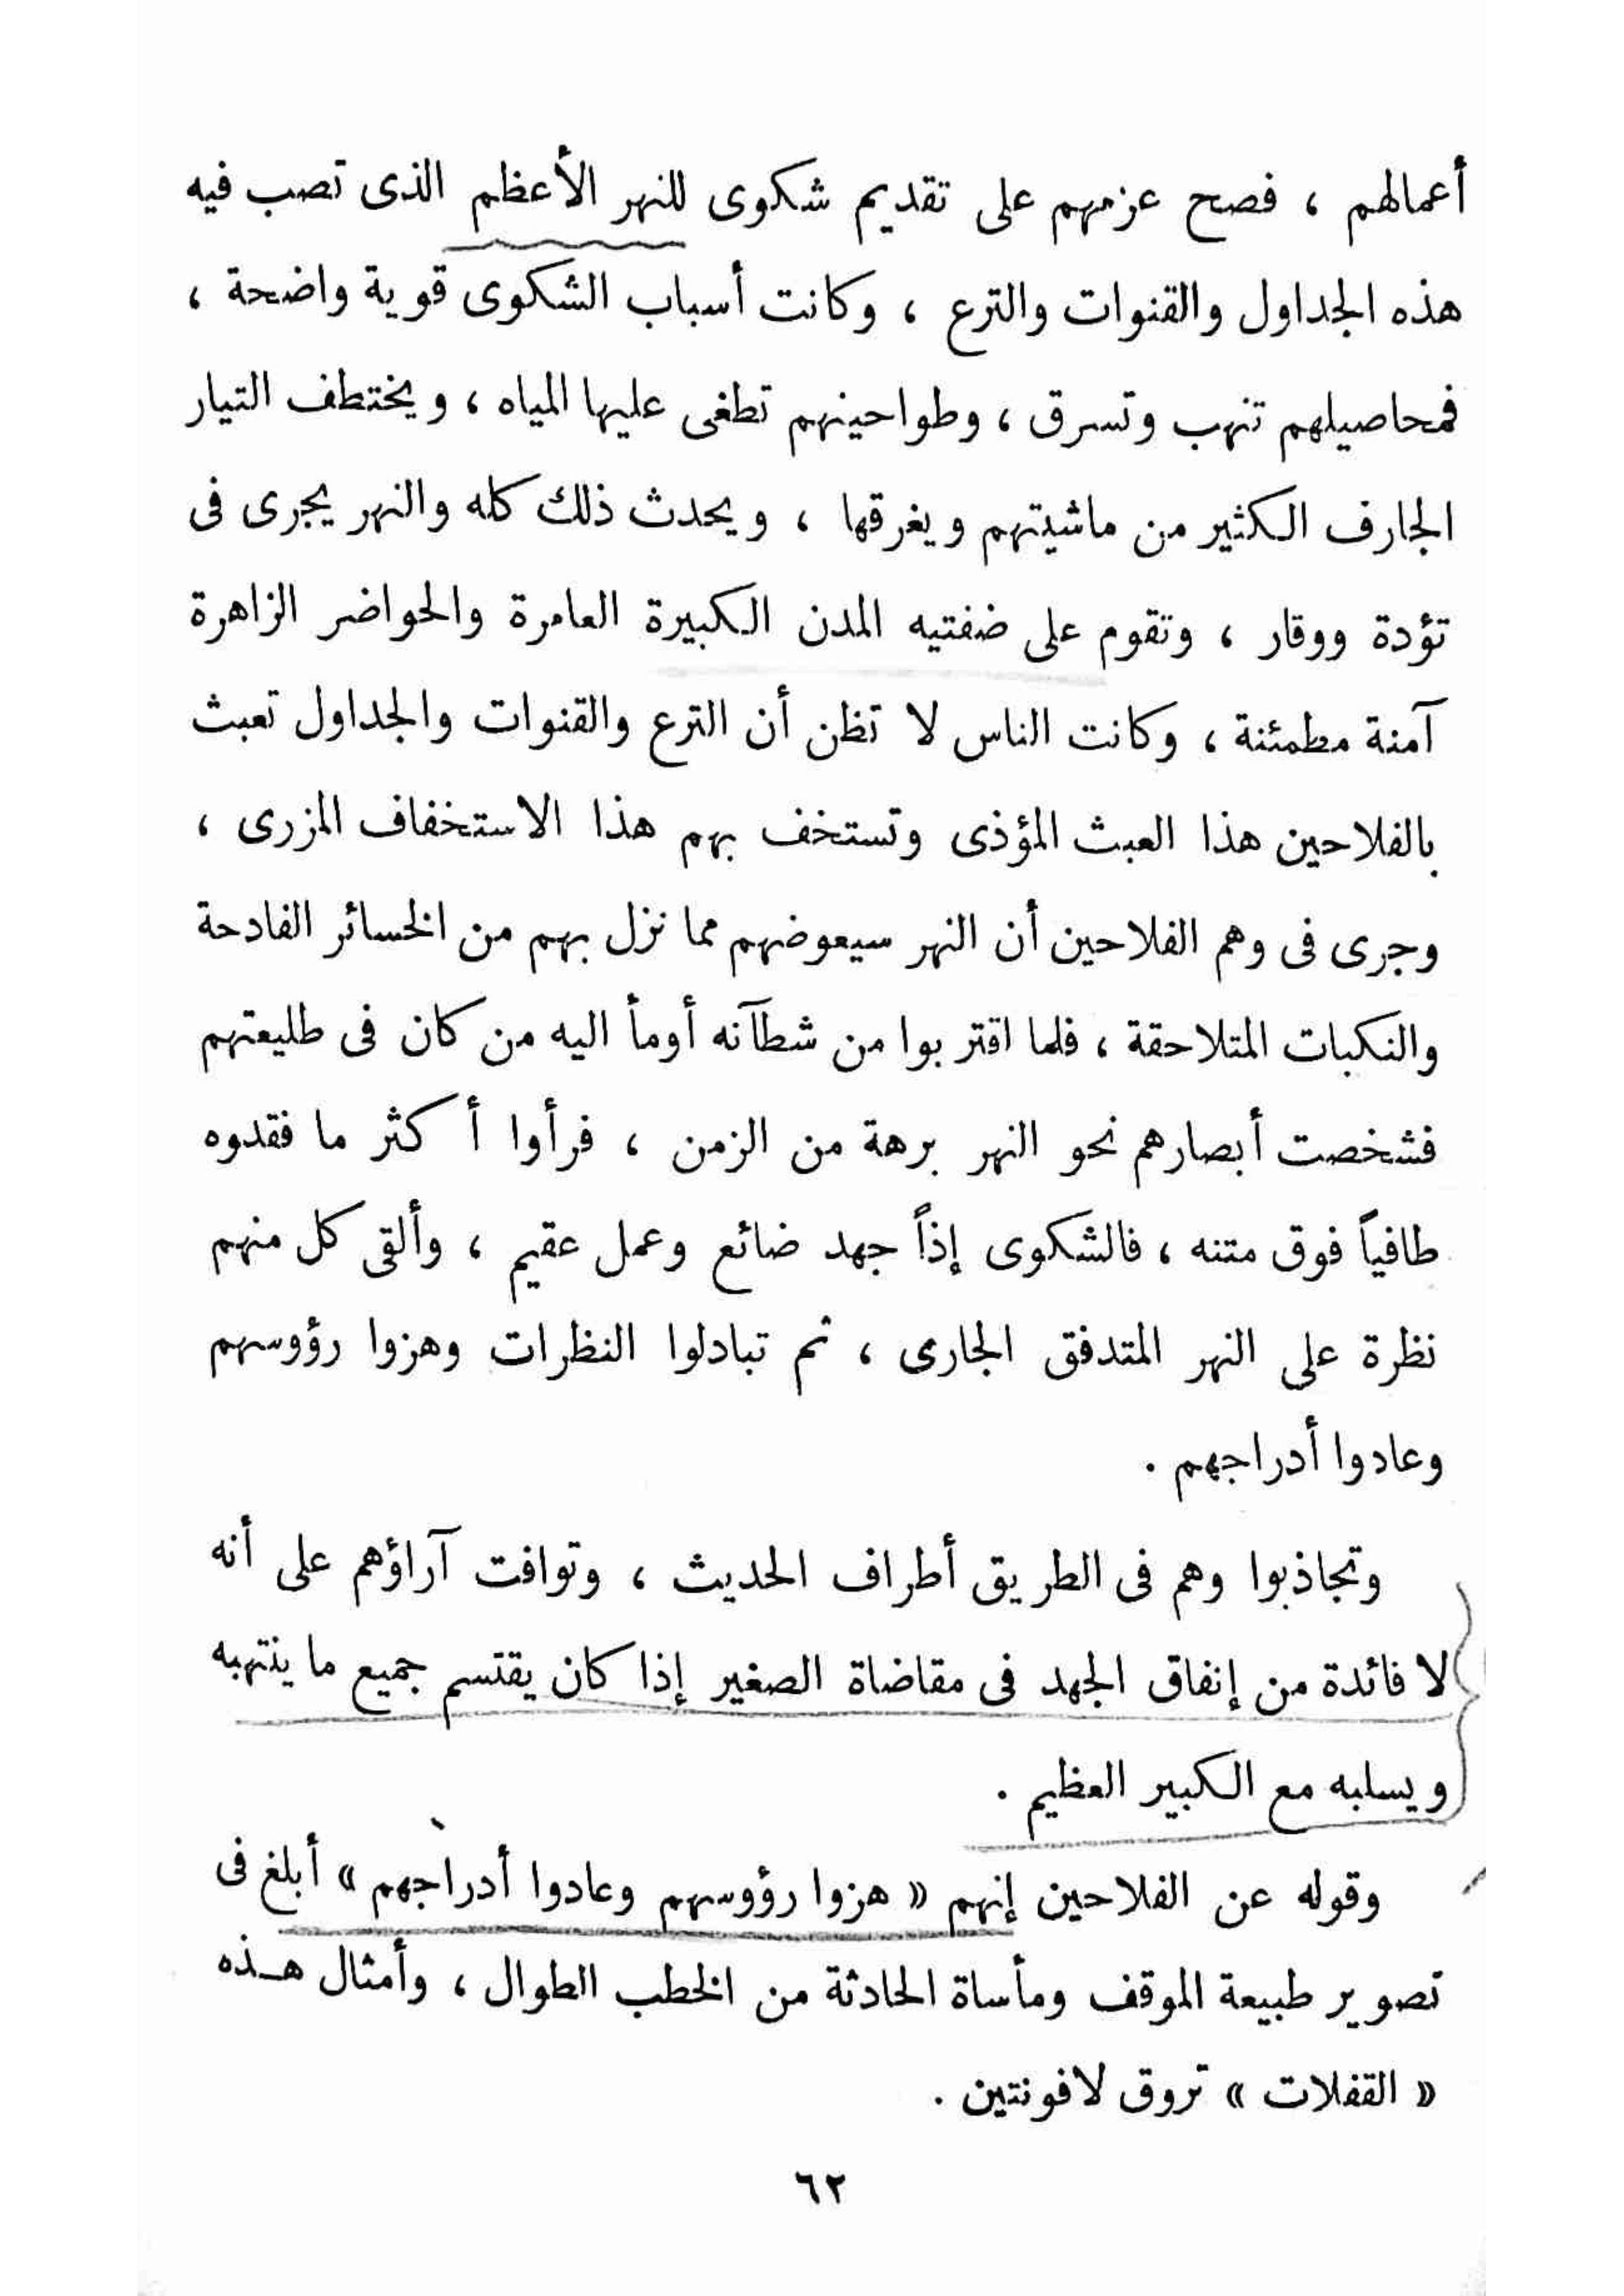 أعمالهم ، فصح عزمهم على تقديم شكوى للنهر الأعظم الذى تصب فيه
هذه الجداول والقنوات والترع ، وكانت أسباب الشكوى قوية واضحة ،
فمحاصيلهم تنهب وتسرق ، وطواحينهم تطغى عليها المياه ، ويختطف التيار
الجارف الكثير من ماشيتهم ويغرقها ، ويحدث ذلك كله والنهر يجرى فى
تؤدة ووقار ، وتقوم على ضفتيه المدن الكبيرة العامرة والحواضر الزاهرة
آمنة مطمئنة ، وكانت الناس لا تظن أن الترع والقنوات والجداول تعبث
بالفلاحين هذا العبث المؤذى وتستخف بهم هذا الاستخفاف المزرى ،
وجرى فى وهم الفلاحين أن النهر سيعوضهم مما نزل بهم من الخسائر الفادحة
والنكبات المتلاحقة ، فلما اقتربوا من شطآنه أومأ اليه من كان فى طليعتهم
فشخصت أبصارهم نحو النهر برهة من الزمن ، فرأوا أكثر ما فقدوه
طافياً فوق متنه ، فالشكوى إذاً جهد ضائع وعمل عقيم ، وألقى كل منهم
نظرة على النهر المتدفق الجارى ، ثم تبادلوا النظرات وهزوا رؤوسهم
وعادوا أدراجهم .
وتجاذبوا وهم فى الطريق أطراف الحديث ، وتوافت آراؤهم على أنه
لا فائدة من إنفاق الجهد فى مقاضاة الصغير إذا كان يقتسم جميع ما ينتهبه
ويسلبه مع الكبير العظيم .
وقوله عن الفلاحين إنهم « هزوا رؤوسهم وعادوا أدراجهم » أبلغ فى
تصوير طبيعة الموقف ومأساة الحادثة من الخطب الطوال ، وأمثال هـذه
« القفلات » تروق لافونتين .
٦٢